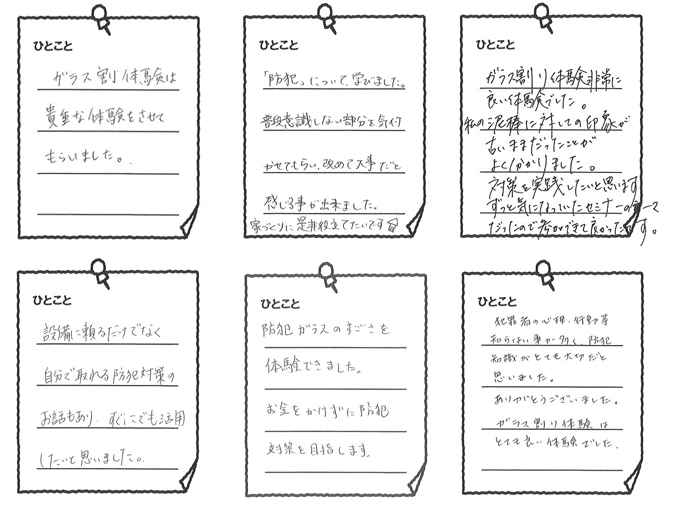 ひとこと
ガラス割り体験は
貴重な体験をさせて
もらいました。
ひとこと
「防犯」について学びました。
普段意識しない部分を気付
かせてもらい、改めて大事だと
感じる事が出来ました。
家づくりに是非役立てたいです
ひとこと
ガラス割り体験非常に
良い体験でした。
私の泥棒に対しての印象が
古いままだったことが
よく分かりました。
対策を実践したいと思います
ずっと気になっていたセミナーのテーマ
だったので参加できて良かったです。
ひとこと
設備に頼るだけでなく
自分で取れる防犯対策の
お話もあり、すぐにでも活用
したいと思いました。
ひとこと
防犯ガラスのすごさを
体験できました。
お金をかけずに防犯
対策を目指します。
ひとこと
犯罪者の心理、行動等
知らない事が多く、防犯
知識がとても大切だと
思いました。
ありがとうございました。
ガラス割り体験は
とても良い体験でした。